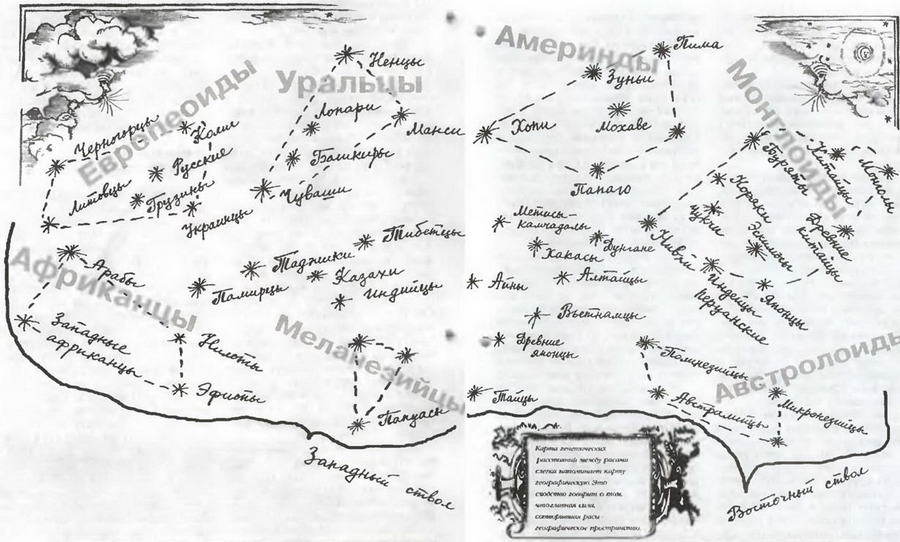 Европеоиды
Уральцы
Ненцы
Лопари
Манси
Башкиры
Чуваши
Черногорцы
Коми
Русские
Литовцы
Грузины
Украинцы
Африканцы
Арабы
Западные
африканцы
Нилоты
Эфиопы
Тибетцы
Таджики
Памирцы
Казахи
Индийцы
Меланезийцы
Папуасы
Западный ствол
Америнды
Пима
Зуньи
Хопи
Мохаве
Папаго
Монголоиды
Буряты
Китайцы
Монголы
Коряки
Чукчи
Эскимосы
Древние
китайцы
Нивхи
Индейцы
Перуанские
Японцы
Метисы-
камчадалы
Дунгане
Хакасы
Айны
Алтайцы
Вьетнамцы
Древние
японцы
Тайцы
Австролоиды
Полинезийцы
Австралийцы
Микронезийцы
Восточный ствол
Карта генетических
расстояний между расами
слегка напоминает карту
географическую. Это
сходство говорит о том,
что главная сила,
сотворившая расы -
географическое пространство.